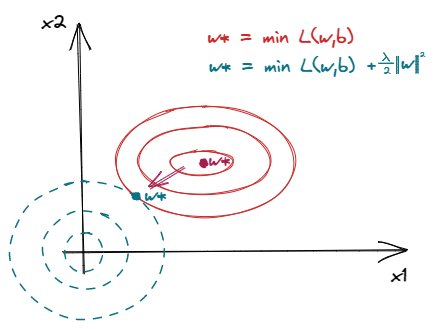 x2
w* = min L(w,b)
w* = min L(w,b) + λ/2 ‖w‖²
w*
w*
x1